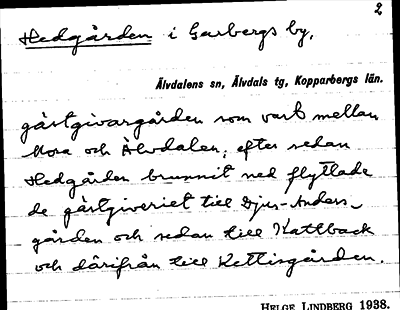 2
Hedgården i Garbergs by,
Älvdalens sn, Älvdals tg, Kopparbergs län.
gästgivargården som vart mellan
Mora och Älvdalen; efter sedan
Hedgården brunnit ned flyttade
de gästgiveriet till Djus-Anders-
gården och sedan till Kattback
och därifrån till Kettisgården.
HELGE LINDBERG 1938.